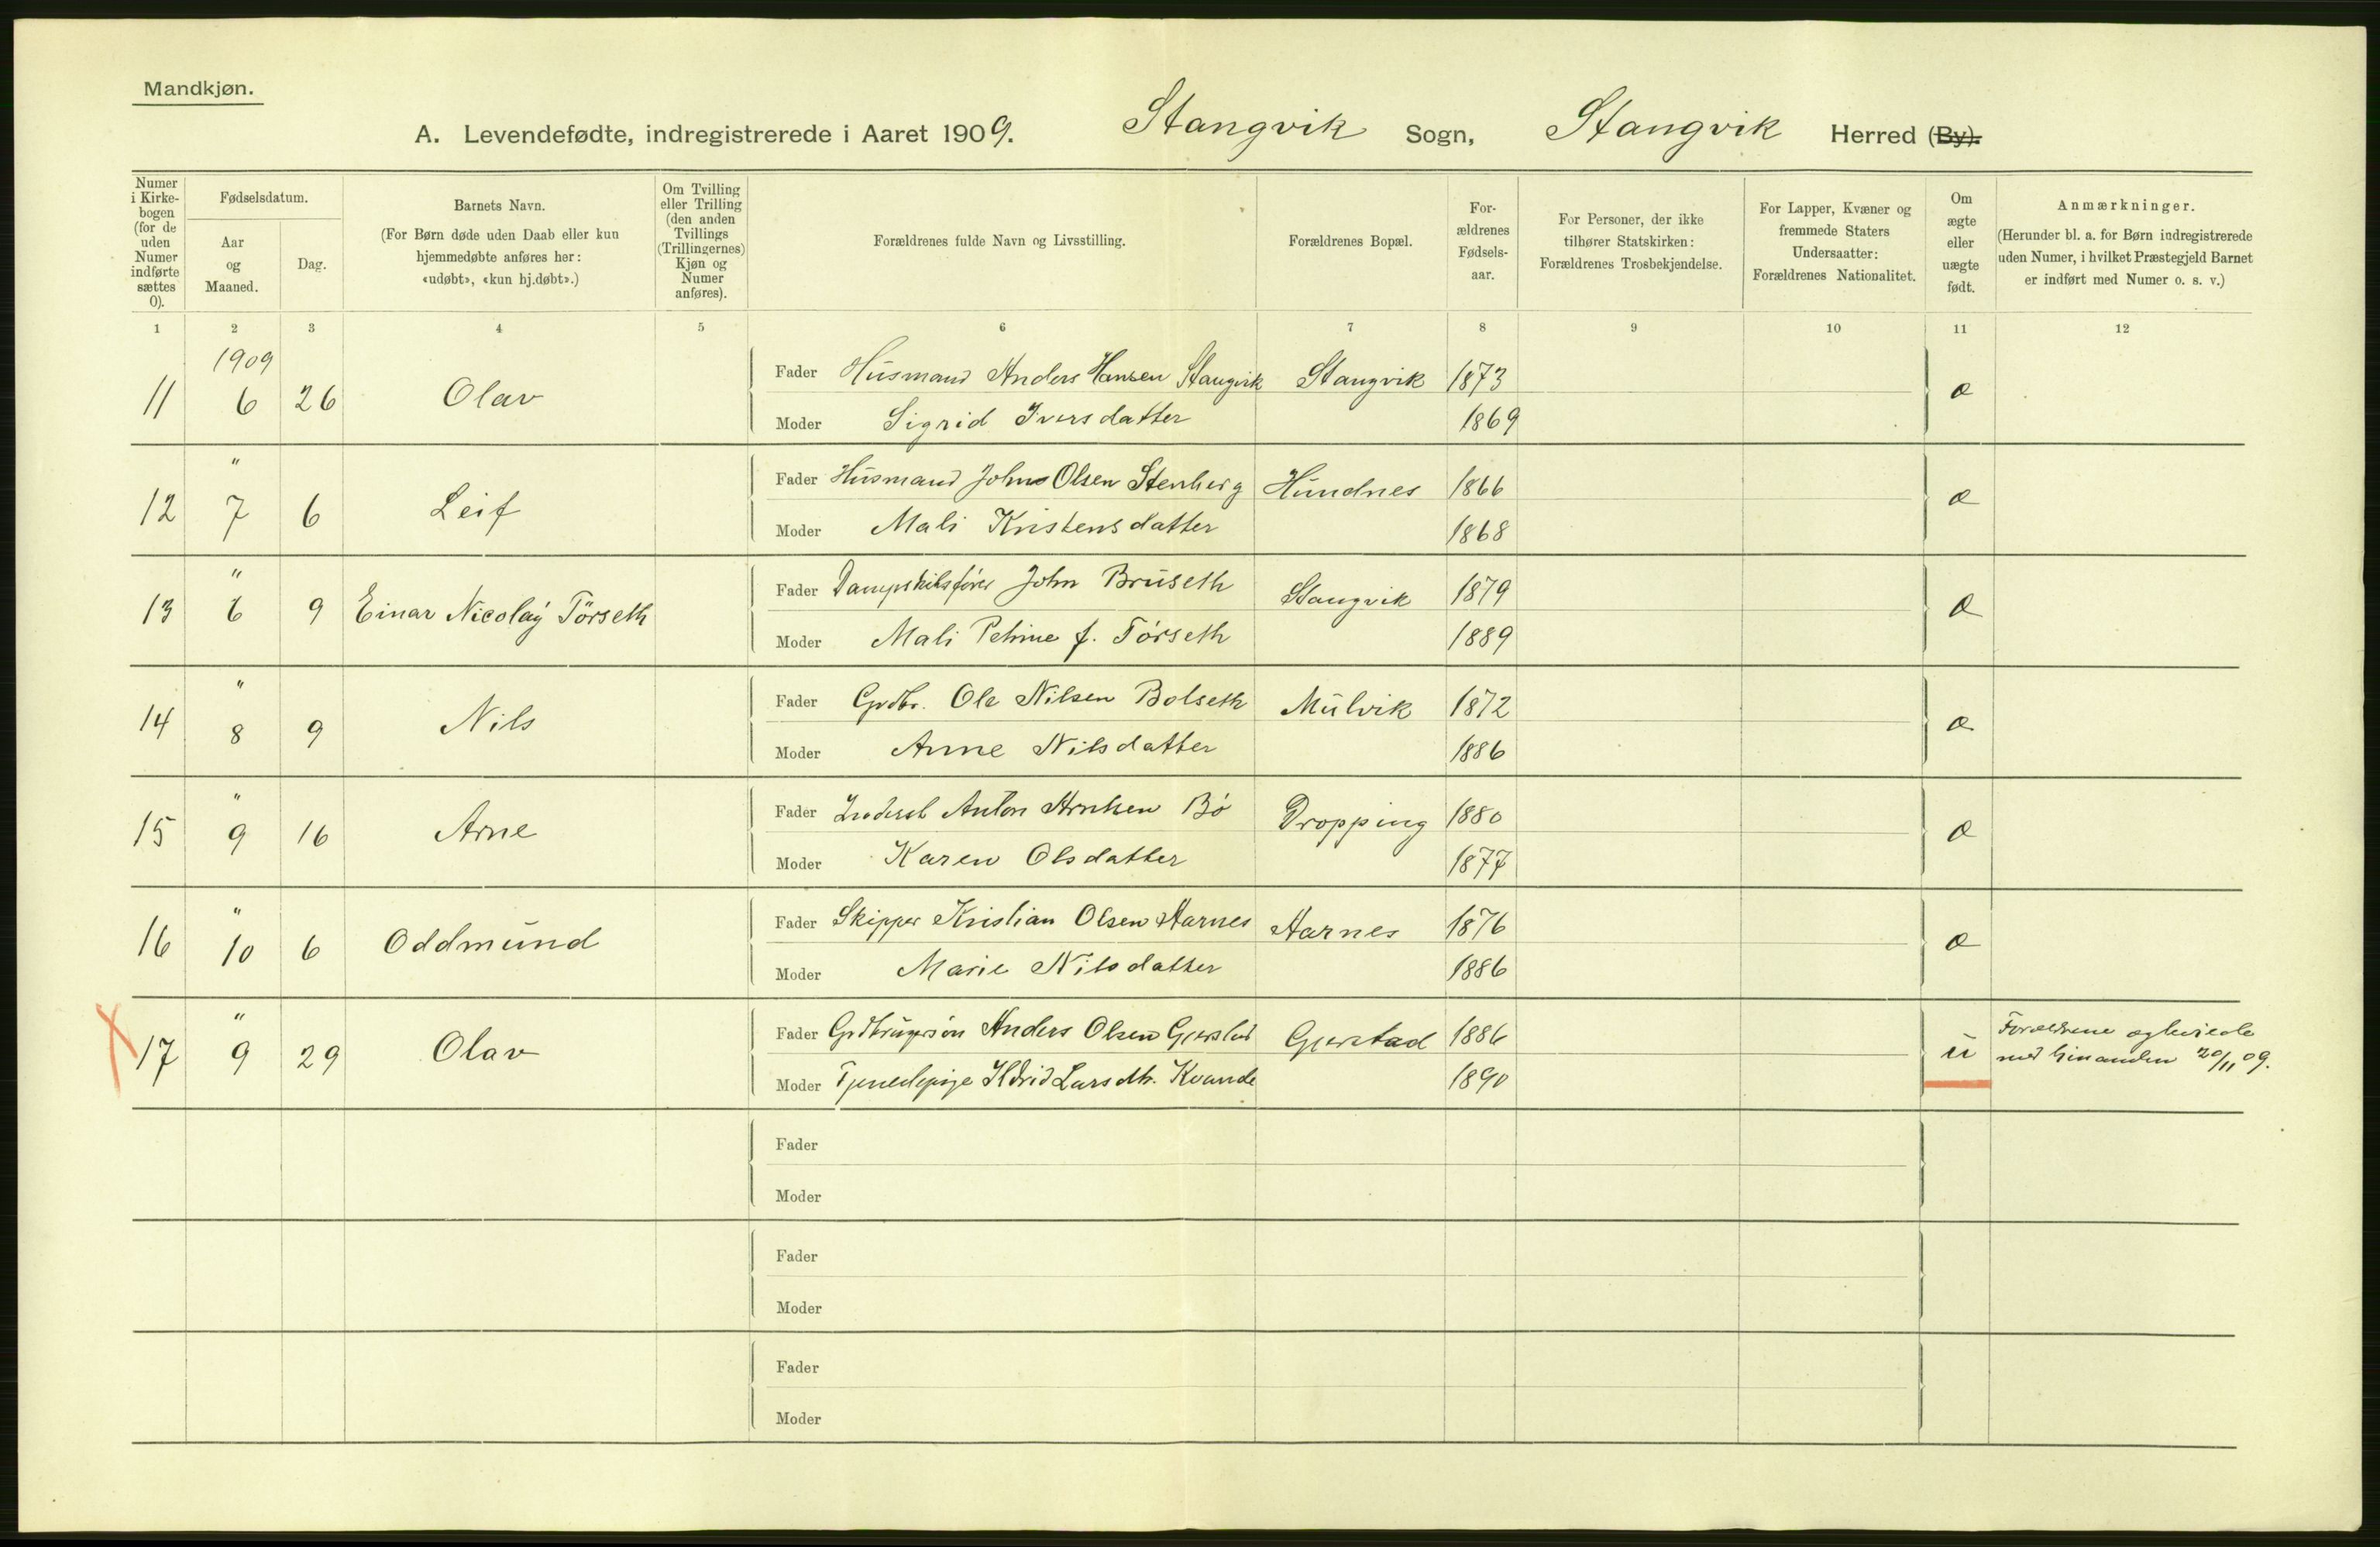 Mandkjøn.
A. Levendefødte, indregistrerede i Aaret 1909. Stangvik Sogn, Stangvik Herred (By).
Numer i Kirkebogen (for de uden Numer indførte sættes 0).
Fødselsdatum.
Aar og Maaned.
Dag.
Barnets Navn.
(For Børn døde uden Daab eller kun hjemmedøbte anføres her: «udøbt», «kun hj.døbt».)
Om Tvilling eller Trilling (den anden Tvillings (Trillingernes) Kjøn og Numer anføres).
Forældrenes fulde Navn og Livsstilling.
Forældrenes Bopæl.
Forældrenes Fødselsaar.
For Personer, der ikke tilhører Statskirken: Forældrenes Trosbekjendelse.
For Lapper, Kvæner og fremmede Staters Undersaatter: Forældrenes Nationalitet.
Om ægte eller uægte født.
Anmærkninger.
(Herunder bl. a. for Børn indregistrerede uden Numer, i hvilket Præstegjeld Barnet er indført med Numer o. s. v.)
1 2 3 4 5 6 7 8 9 10 11 12
1909
11 6 26 Olav Fader Husmand Anders Hansen Stangvik Stangvik 1873 æ
Moder Sigrid Iversdatter 1869
"
12 7 6 Leif Fader Husmand John Olsen Stenberg Hundnes 1866 æ
Moder Mali Kristensdatter 1868
"
13 6 9 Einar Nicolay Törseth Fader Dampskibsfører John Bruseth Stangvik 1879 æ
Moder Mali Petrine f. Törseth 1889
"
14 8 9 Nils Fader Grdbr. Ole Nilsen Bolseth Mulvik 1872 æ
Moder Anne Nilsdatter 1886
"
15 9 16 Arne Fader Anton Arntsen Bö Dropping 1880 æ
Moder Karen Olsdatter 1877
"
16 10 6 Oddmund Fader Skipper Kristian Olsen Aarnes Aarnes 1876 æ
Moder Marie Nilsdatter 1886
"
17 9 29 Olav Fader Grdbrugersön Anders Olsen Gjerstad Gjerstad 1886 u Forældrene egteviede
Moder Tjenestepige Ildrid Larsdtr. Kvande 1890 med hinanden 20/11 09.
Fader
Moder
Fader
Moder
Fader
Moder